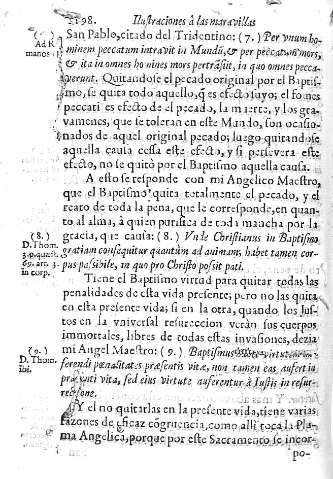 198. Ilustraciones à las maravillas
San Pablo, citado del Tridentino: (7.) Per vnum ho-
minem peccatum intravit in Mundũ, & per peccatum mors,
& ita in omnes homines mors pertrãsijt, in quo omnes pecca-
verunt. Quitandose el pecado original por el Baptis-
mo, se quita todo aquello, q̃ es efecto suyo; el fomes
peccati es efecto de el pecado, la muerte, y los gra-
vamenes, que se toleran en este Mundo, son ocasio-
nados de aquel original pecado; luego quitandose
aquella causa cessa este efecto, y si persevera este
efecto, no se quitò por el Baptismo aquella causa.
A esto se responde con mi Angelico Maestro,
que el Baptismo quita totalmente el pecado, y el
reato de toda la pena, que le corresponde, en quan-
to al alma, à quien purifica de toda mancha por la
gracia, que causa: (8.) Vnde Christianus in Baptismo
gratiam consequitur quantùm ad animam, habet tamen cor-
pus passibile, in quo pro Christo possit pati.
Tiene el Baptismo virtud para quitar todas las
penalidades de esta vida presente; pero no las quita
en esta presente vida; si en la otra, quando los Jus-
tos en la vniversal resurreccion veràn sus cuerpos
immortales, libres de todas estas invasiones, dezia
mi Angel Maestro: (9.) Baptismus habet virtutem au-
ferendi pœnalitates præsentis vitæ, non tamen eas aufert in
præsenti vita, sed eius virtute auferentur à Iustis in resur-
rectione.
Y el no quitarlas en la presente vida, tiene varias
razones de eficaz cõgruencia, como alli toca la Plu-
ma Angelica, porque por este Sacramento se incor-
po-
(7.)
Ad R
manos
(8.)
D. Thom.
3. p. quæst.
69. art. 3.
in corp.
(9.)
D. Thom.
ibi.